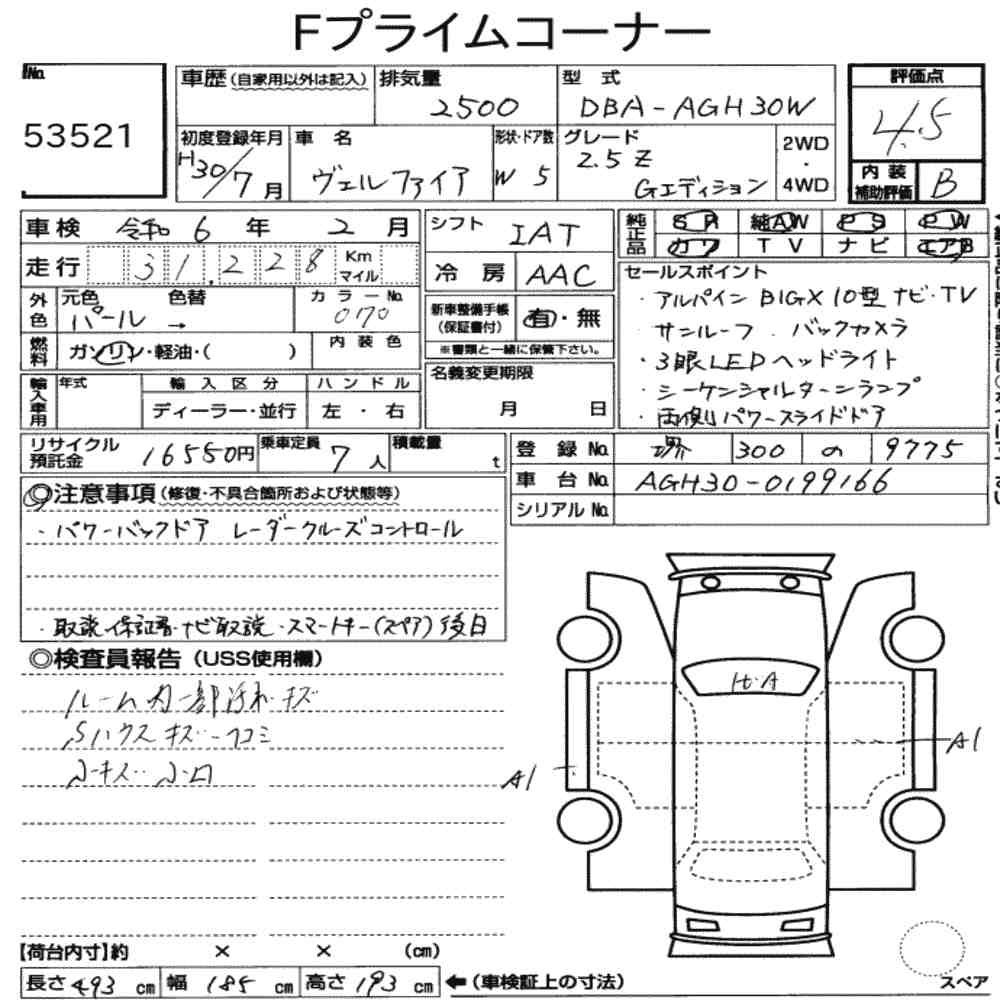 Fプライムコーナー
No.
53521
車歴(自家用以外は記入)
排気量
2500
型 式
DBA-AGH30W
評価点
4.5
初度登録年月
H30/7月
車 名
ヴェルファイア
形状・ドア数
W 5
グレード
2.5 Z
Gエディション
2WD
・
4WD
内 装
補助評価
B
車検 令和 6 年 2 月
シフト
IAT
純正品
SR 純AW PS PW
カワ TV ナビ エアB
走行 31,228 Km マイル
冷 房 AAC
セールスポイント
・アルパイン BIGX 10型ナビ・TV
サンルーフ . バックカメラ
・3眼LEDヘッドライト
・シーケンシャルターンランプ
・両側パワースライドドア
外色
元色 色替
パール →
カラーNo.
070
新車整備手帳
(保証書付)
有・無
※書類と一緒に保管下さい。
燃料
ガソリン・軽油・( )
内 装 色
名義変更期限
月 日
輸入車用
年式
輸 入 区 分
ハ ン ド ル
ディーラー・並行
左 ・ 右
リサイクル
預託金
16550円
乗車定員
7 人
積載量
t
登 録 No. 堺 300 の 9775
車 台 No. AGH30-0199166
シリアル No.
◎注意事項(修復・不具合箇所および状態等)
・パワーバックドア レーダークルーズコントロール
・取説・保証書・ナビ取説・スマートキー(スペア)後日
◎検査員報告(USS使用欄)
ルーム内一部汚れ・キズ
Sハウスキズ・凹コミ
A1
A1
【荷台内寸】約 × × (cm)
長さ 493 cm 幅 185 cm 高さ 193 cm
←(車検証上の寸法)
スペア